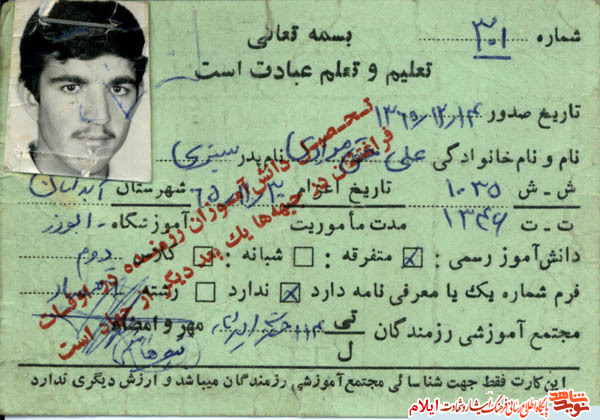 بسمه تعالی
شماره ۳۰۱
تعلیم و تعلم عبادت است
تاریخ صدور ۱۳۶۵/۱۲/۱۴
نام و نام خانوادگی علی مرادی نام پدر سبزی
ش - ش ۱۰۳۵ تاریخ اعزام شهرستان آبدانان
ت - ت ۱۳۴۶ مدت مأموریت آموزشگاه - ابوذر
دانش آموز رسمی : متفرقه : شبانه : کلاس دوم
فرم شماره یک یا معرفی نامه دارد ندارد رشته
مجتمع آموزشی رزمندگان تی / ل مهر و امضاء
این کارت فقط جهت شناسائی مجتمع آموزشی رزمندگان میباشد و ارزش دیگری ندارد
تحصیل دانش آموزان رزمنده در اوقات
فراغت در جبهه ها یک بعد دیگر از جهاد است
نوید شاهد
پایگاه اطلاع رسانی فرهنگ ایثار و شهادت ایلام